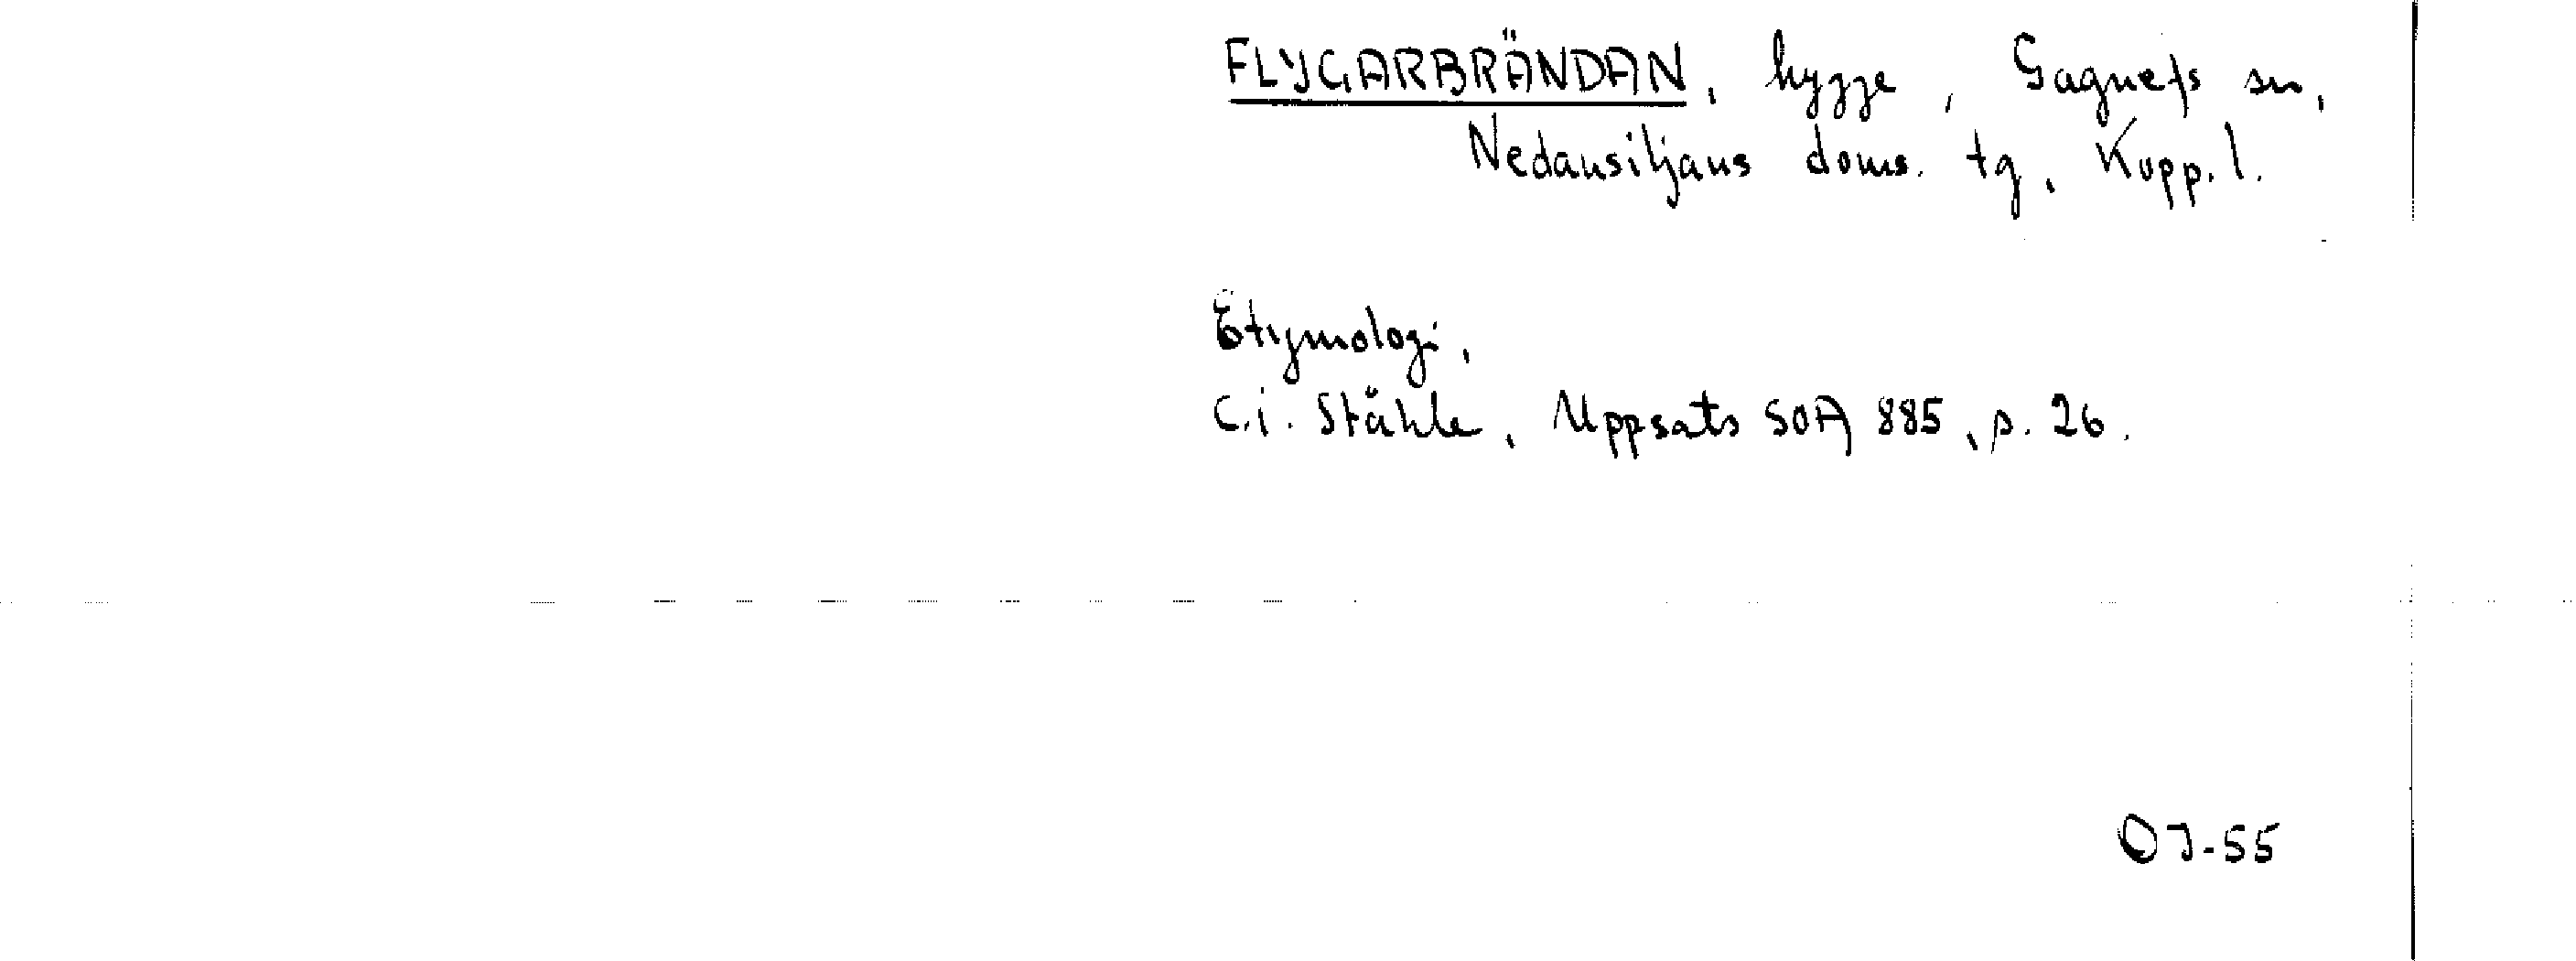 FLYGARBRÄNDAN, hygge, Gagnefs sn,
Nedansiljans doms. tg, Kopp. l.
Etymologi,
C.i. Ståhle, Uppsats SOA 885, s. 26.
OJ-55